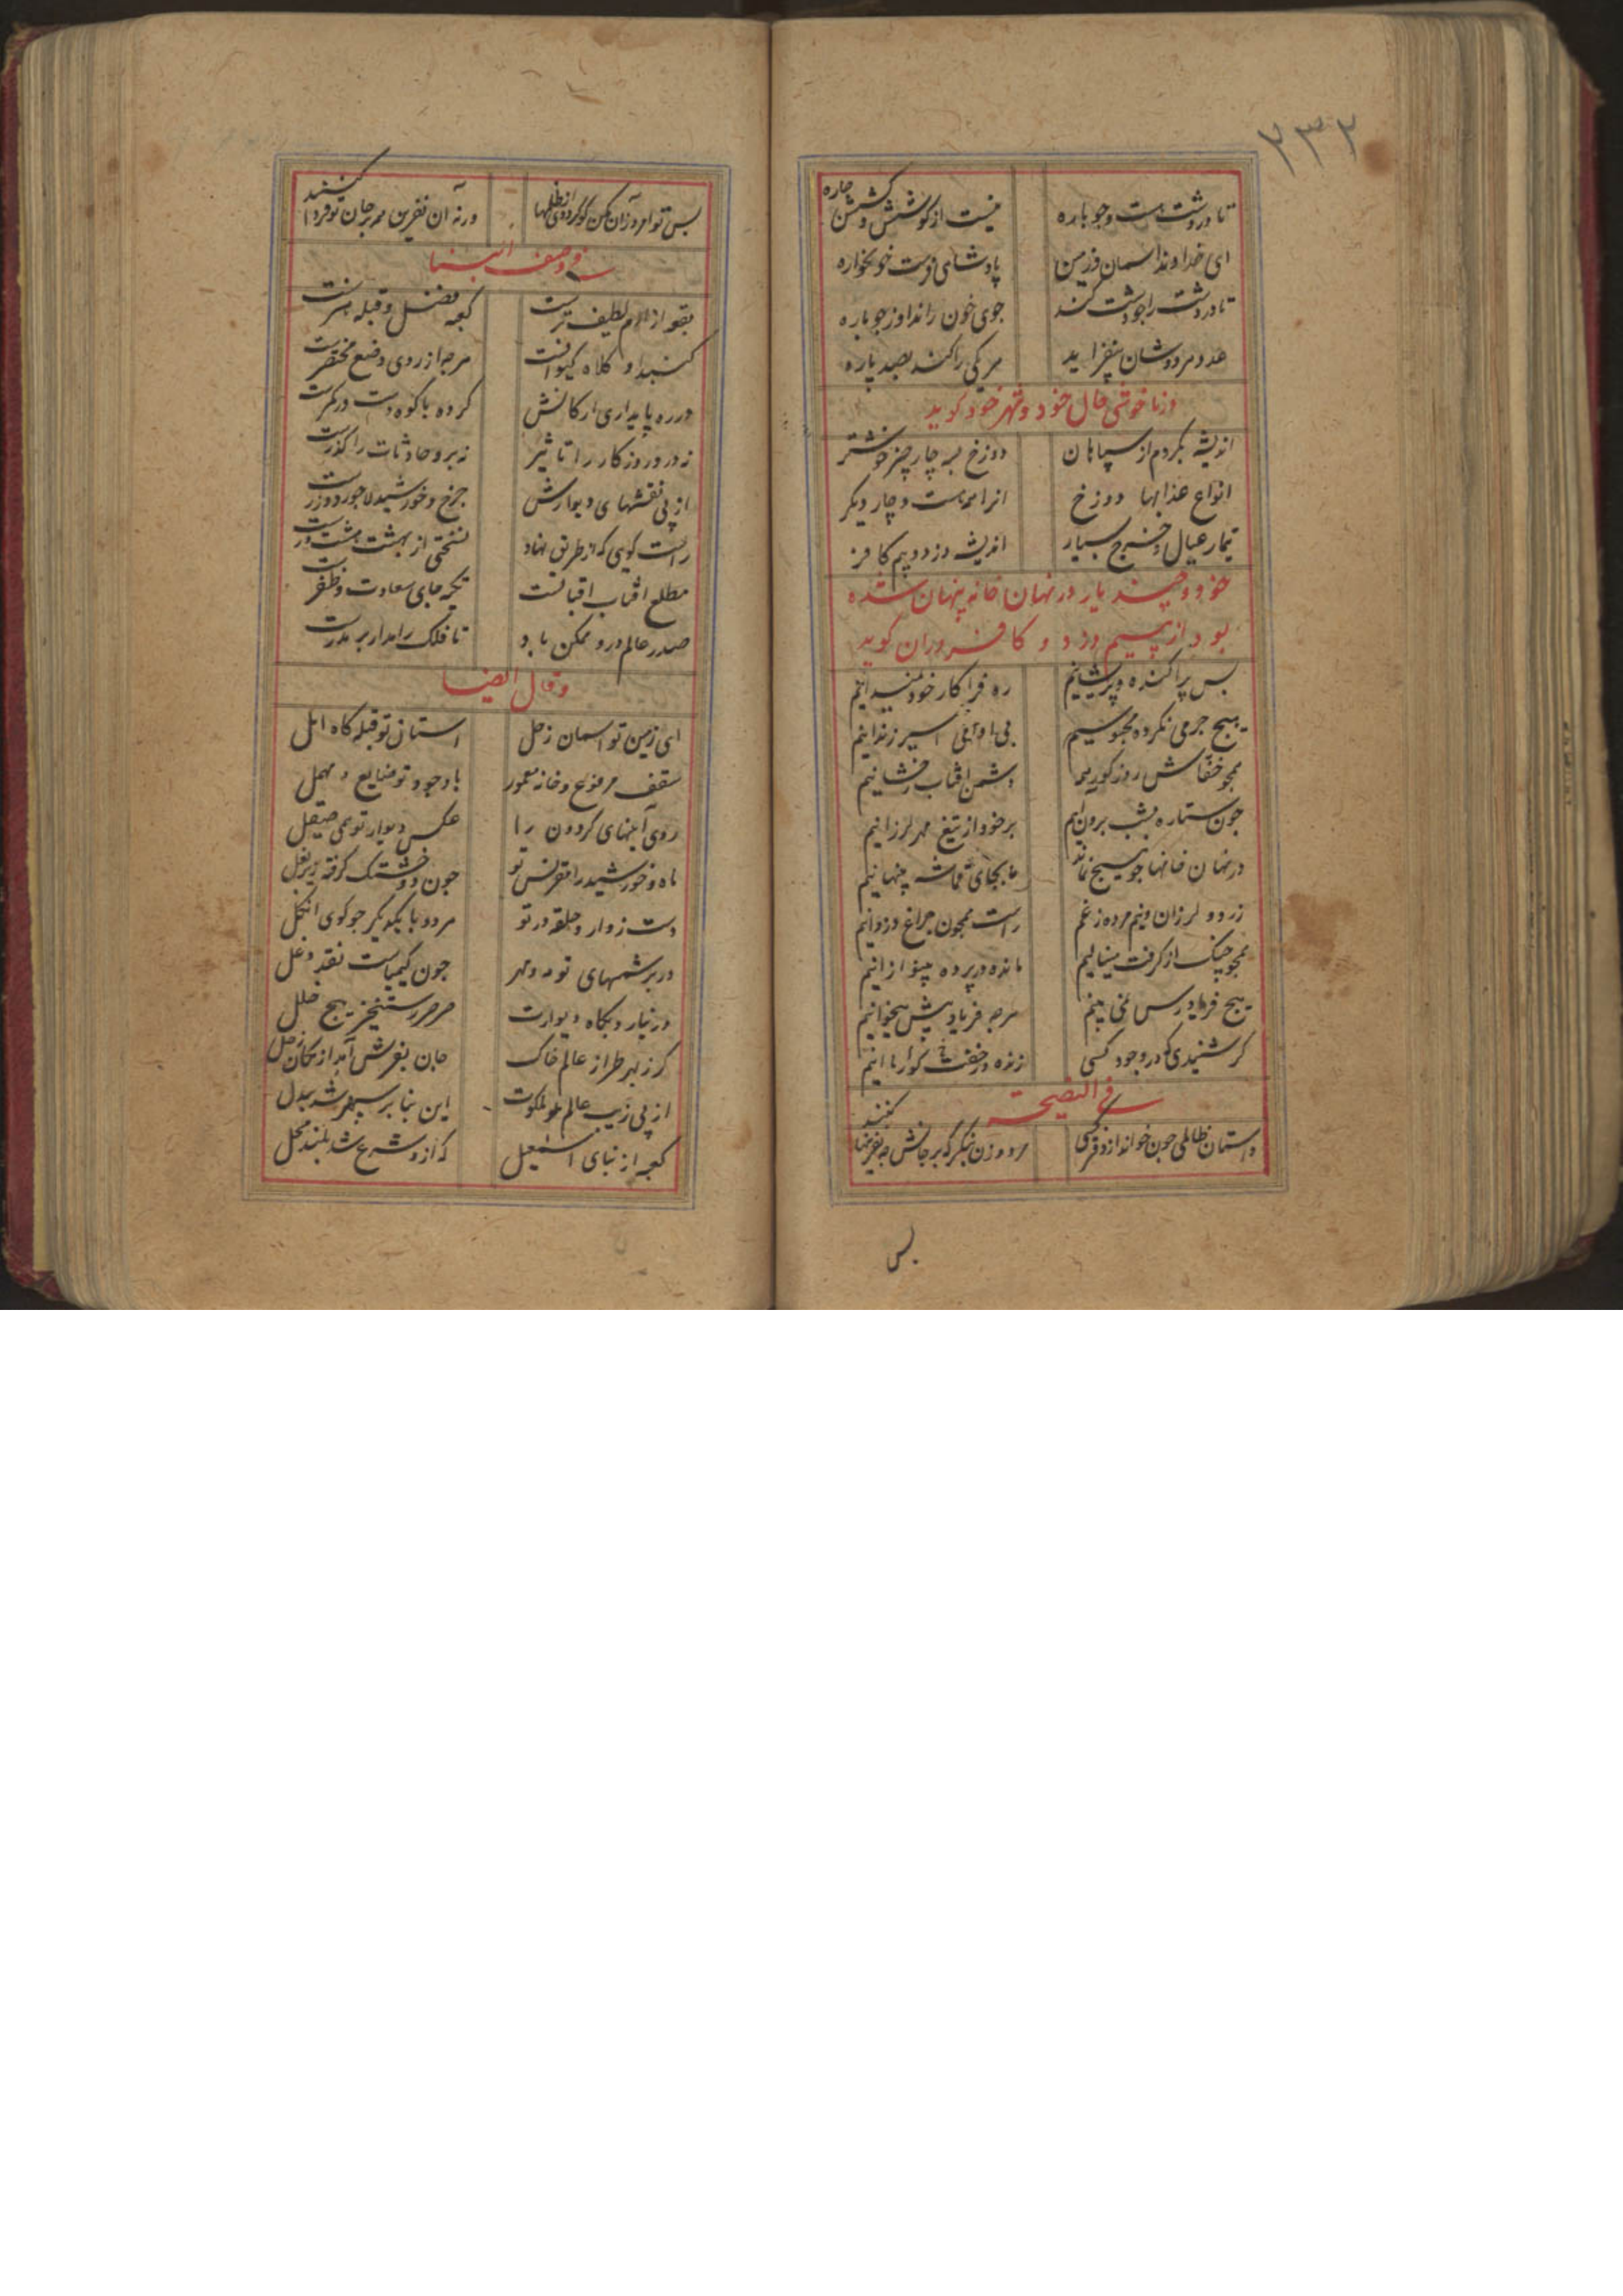 ۲۳۲
تا در دشت هست و جوباره
نیست از کوشش و کشش چاره
ای خداوند آسمان و زمین
پادشاهی فرست خونخواره
تا در دشت را چو دشت کند
جوی خون راند او ز جوباره
عدد مردوشان بیفزاید
هر یکی را کند بصد پاره
و در ناخوشی حال خود و شهر خود گوید
اندیشه بکردم از سپاهان
دوزخ بسه چار چیز خوشتر
انواع عذابها دوزخ
انرا همه هست و چار دیگر
تیمار عیال و خرج بسیار
اندیشه دزد و بیم کافر
خود و چند یار در نهان خانه پنهان شده
بود از بیم دزد و کافر دران گوید
بس پراکنده و پریشانیم
ره فرا کار خود نمیدانیم
هیچ جرمی نکرده محبوسیم
بی اسیر زندانیم
همچو خفاش روز کوریم
دشمن آفتاب رخشانیم
چون ستاره بشب برون آییم
بر خود از تیغ مهر لرزانیم
در نهان خانها چو هیچ نماند
ما بجای قماشه پنهانیم
زرد و لرزان و نیم مرده ز غم
راست همچون چراغ دزدانیم
همچو چنگ از گرفت مینالیم
مانده در پرده بینوا زانیم
هیچ فریادرس نمی بینیم
هرچه فریاد پیش میخوانیم
گر شنیدی که در وجود کسی
زنده در خفت گور ما انیم
فی النصیحة
داستان ظالمی چون خواند از دفتر کسی
مرد و زن بنگر که بر جانش چه نفرینها کنند
بس
بس تو امروز آن مکن گر کرده‌ای از ظلمها
ورنه آن نفرین همه بر جان تو فردا کنند
فی وصف البنا
بقعه از ارم لطیف ترست
کعبه فضل و قبله هنرست
گنبد او کلاه کیوانست
هرچه از روی وضع مختصرست
در ره پایداری ارکانش
کرده با کوه دست در کمرست
نه درو روزگار را تاثیر
نه برو حادثات را گذرست
از پی نقشهای دیوارش
چرخ و خورشید لاجورد و زرست
راست گویی که از طریق نهاد
نسختی از بهشت هشت درست
مطلع آفتاب اقبالست
تکیه جای سعادت و ظفرست
صدر عالم درو ممکن باد
تا فلک را مدار بر مدرست
و قال ایضا
ای زمین تو آسمان زحل
آستان تو قبله گاه امل
سقف مرفوع و خانه معمور
با وجود تو ضایع و مهمل
روی آینهای گردون را
عکس دیوار تو همی صیقل
ماه و خورشید را مقرنس تو
چون دو خشتک گرفته زیر بغل
دست زوار و حلقه در تو
هر دو با یکدیگر چو گوی انگل
در بر شمسهای تو مه و مهر
چون کیمیاست نقد دغل
در نیارد بگاه دیوارت
صرصر رستخیز هیچ خلل
گر ز بهر طراز عالم خاک
جان بفرش آمد از مکان زحل
از پی زیب عالم ملکوت
این بنا بر سپهر شد ببدل
کعبه از بنای اسمعیل
که ازو شرع شد بلند محل